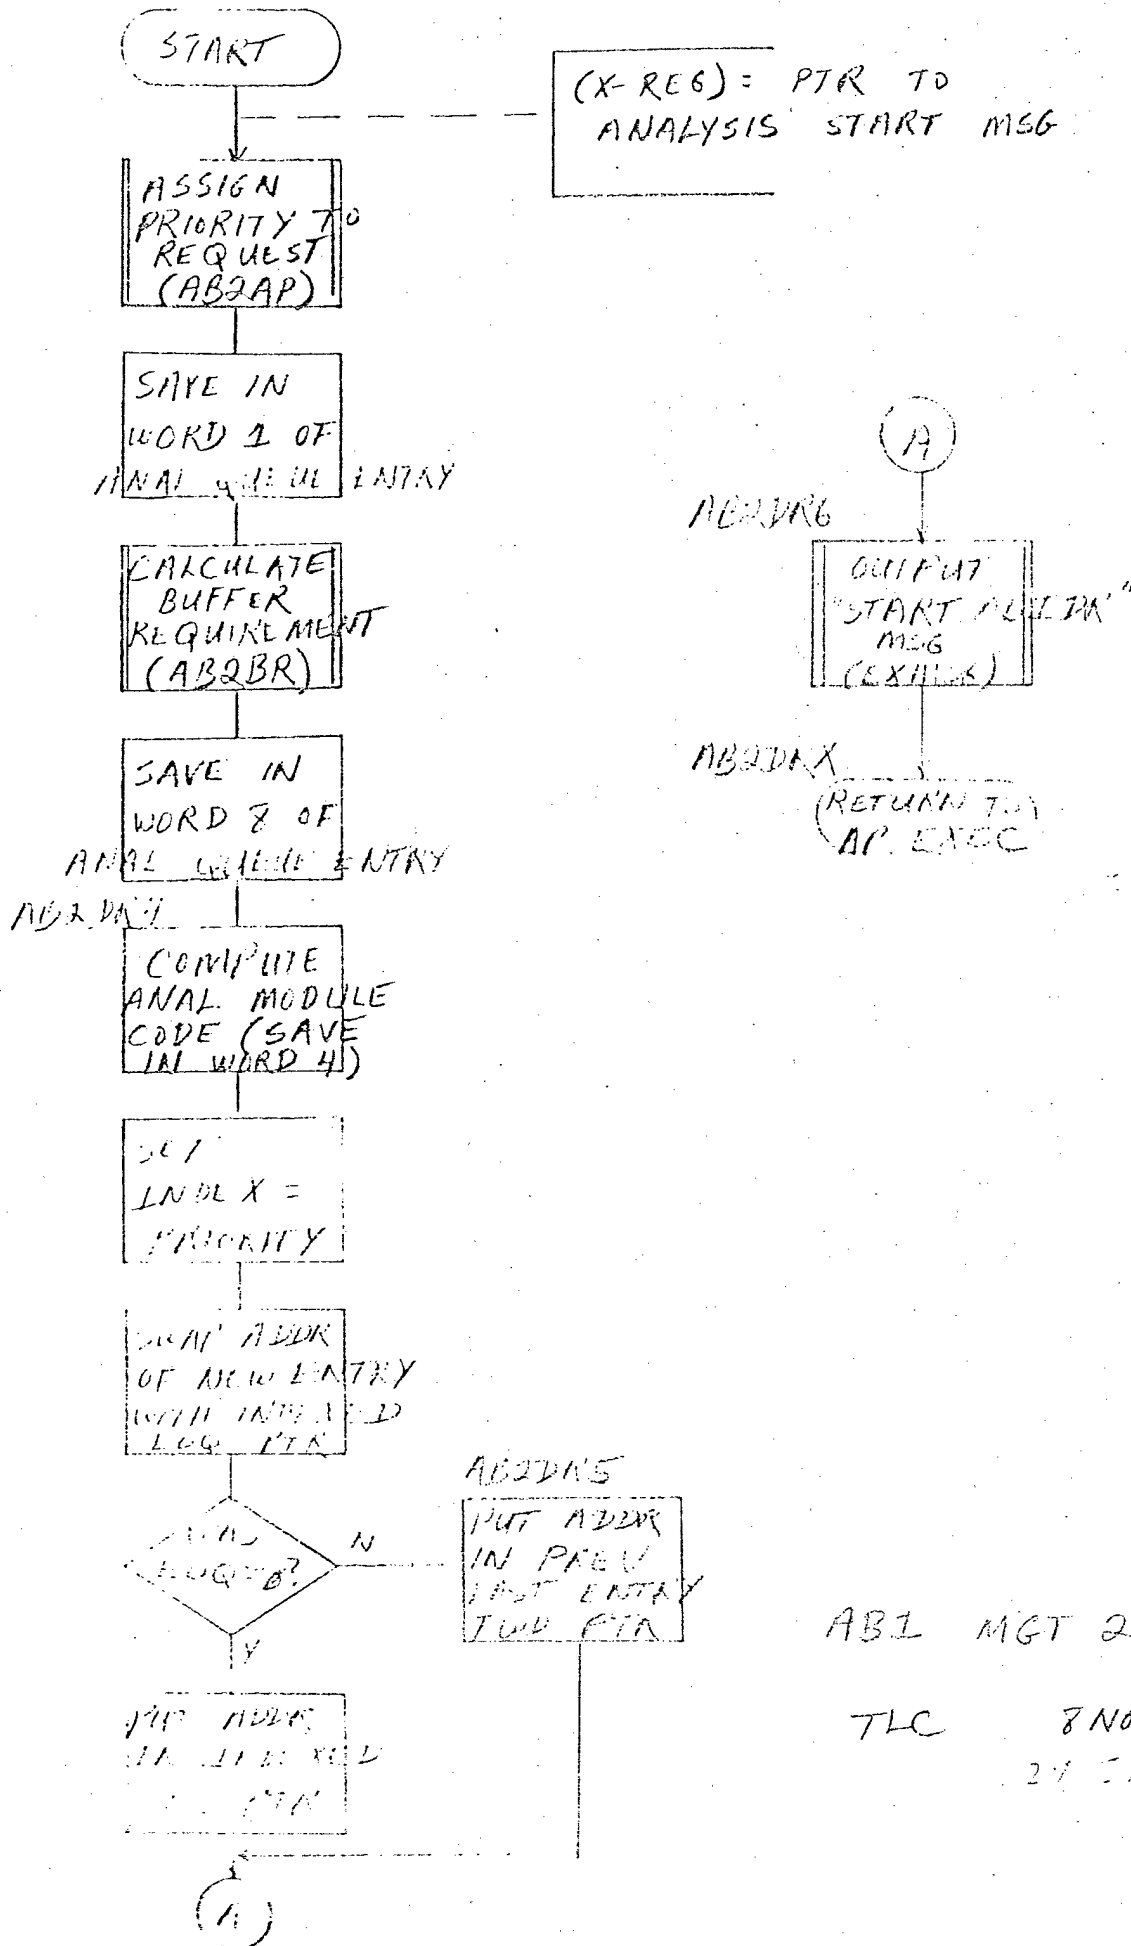 START
(X-REG) = PTR TO
ANALYSIS START MSG
ASSIGN
PRIORITY TO
REQUEST
(AB2AP)
SAVE IN
WORD 1 OF
ANAL QUEUE ENTRY
CALCULATE
BUFFER
REQUIREMENT
(AB2BR)
SAVE IN
WORD 8 OF
ANAL QUEUE ENTRY
COMPUTE
ANAL. MODULE
CODE (SAVE
IN WORD 4)
SET
INDEX =
PRIORITY
SWAP ADDR
OF NEW ENTRY
WITH INDEXED
PTR
WAS
N
Y
AB2DR5
PUT ADDR
IN PREV
LAST ENTRY
PTR
ADDR
INDEXED
PTR
A
A
AB2DR6
OUTPUT
"START
MSG
AB2DRX
RETURN TO
AP EXEC
AB1 MGT 2
TLC 8 NO